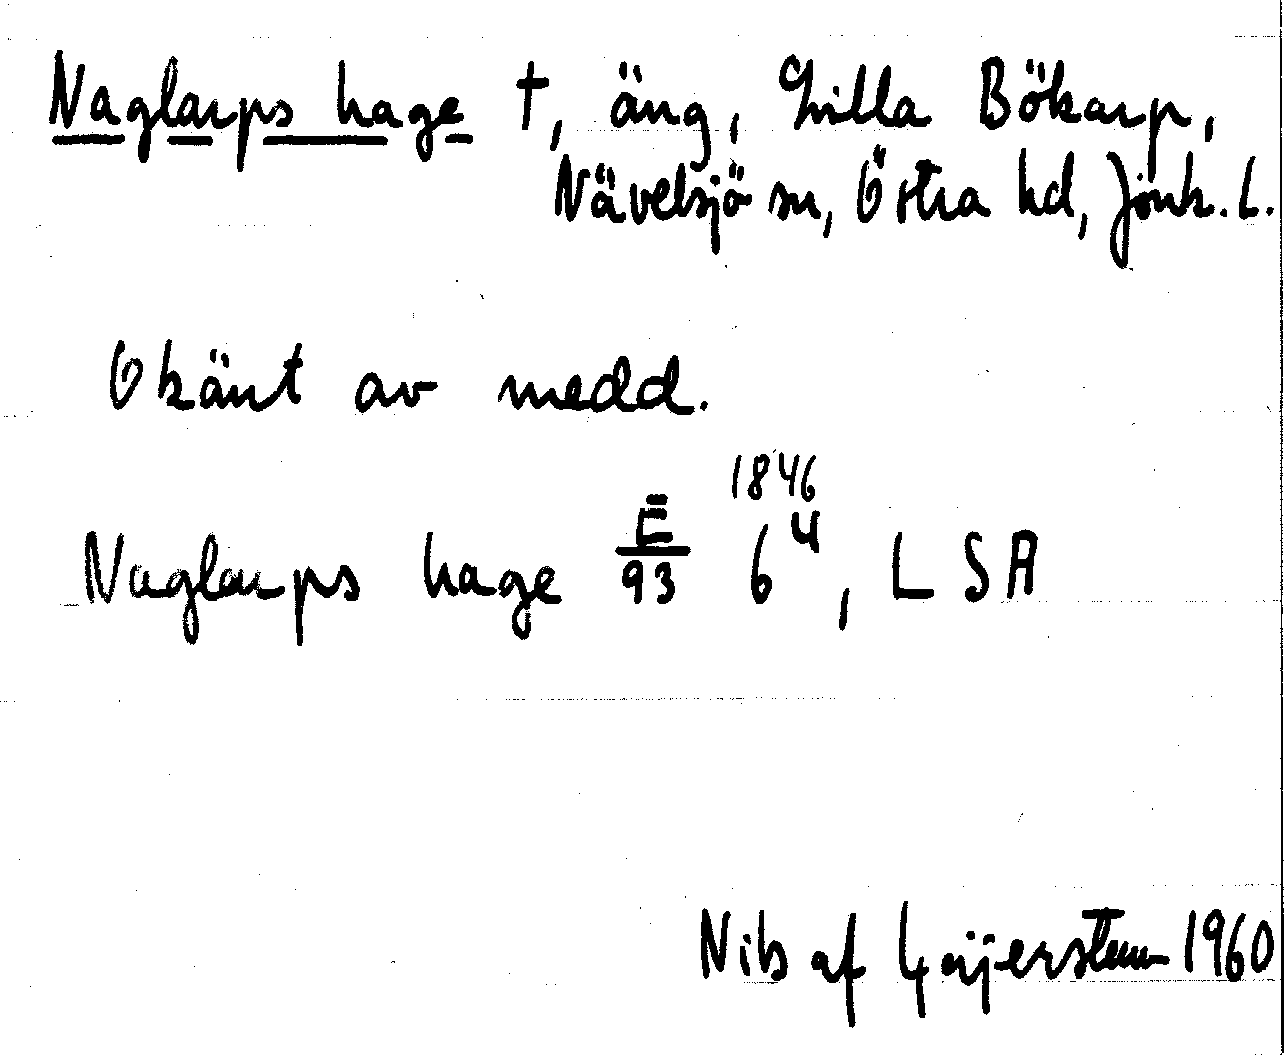 Naglarps hage †, äng, Lilla Bökarp,
Nävelsjö sn, Östra hd, Jönk. l.
Okänt av medd.
Naglarps hage E/93 1846 6⁴, LSA
Nils af Geijerstam 1960